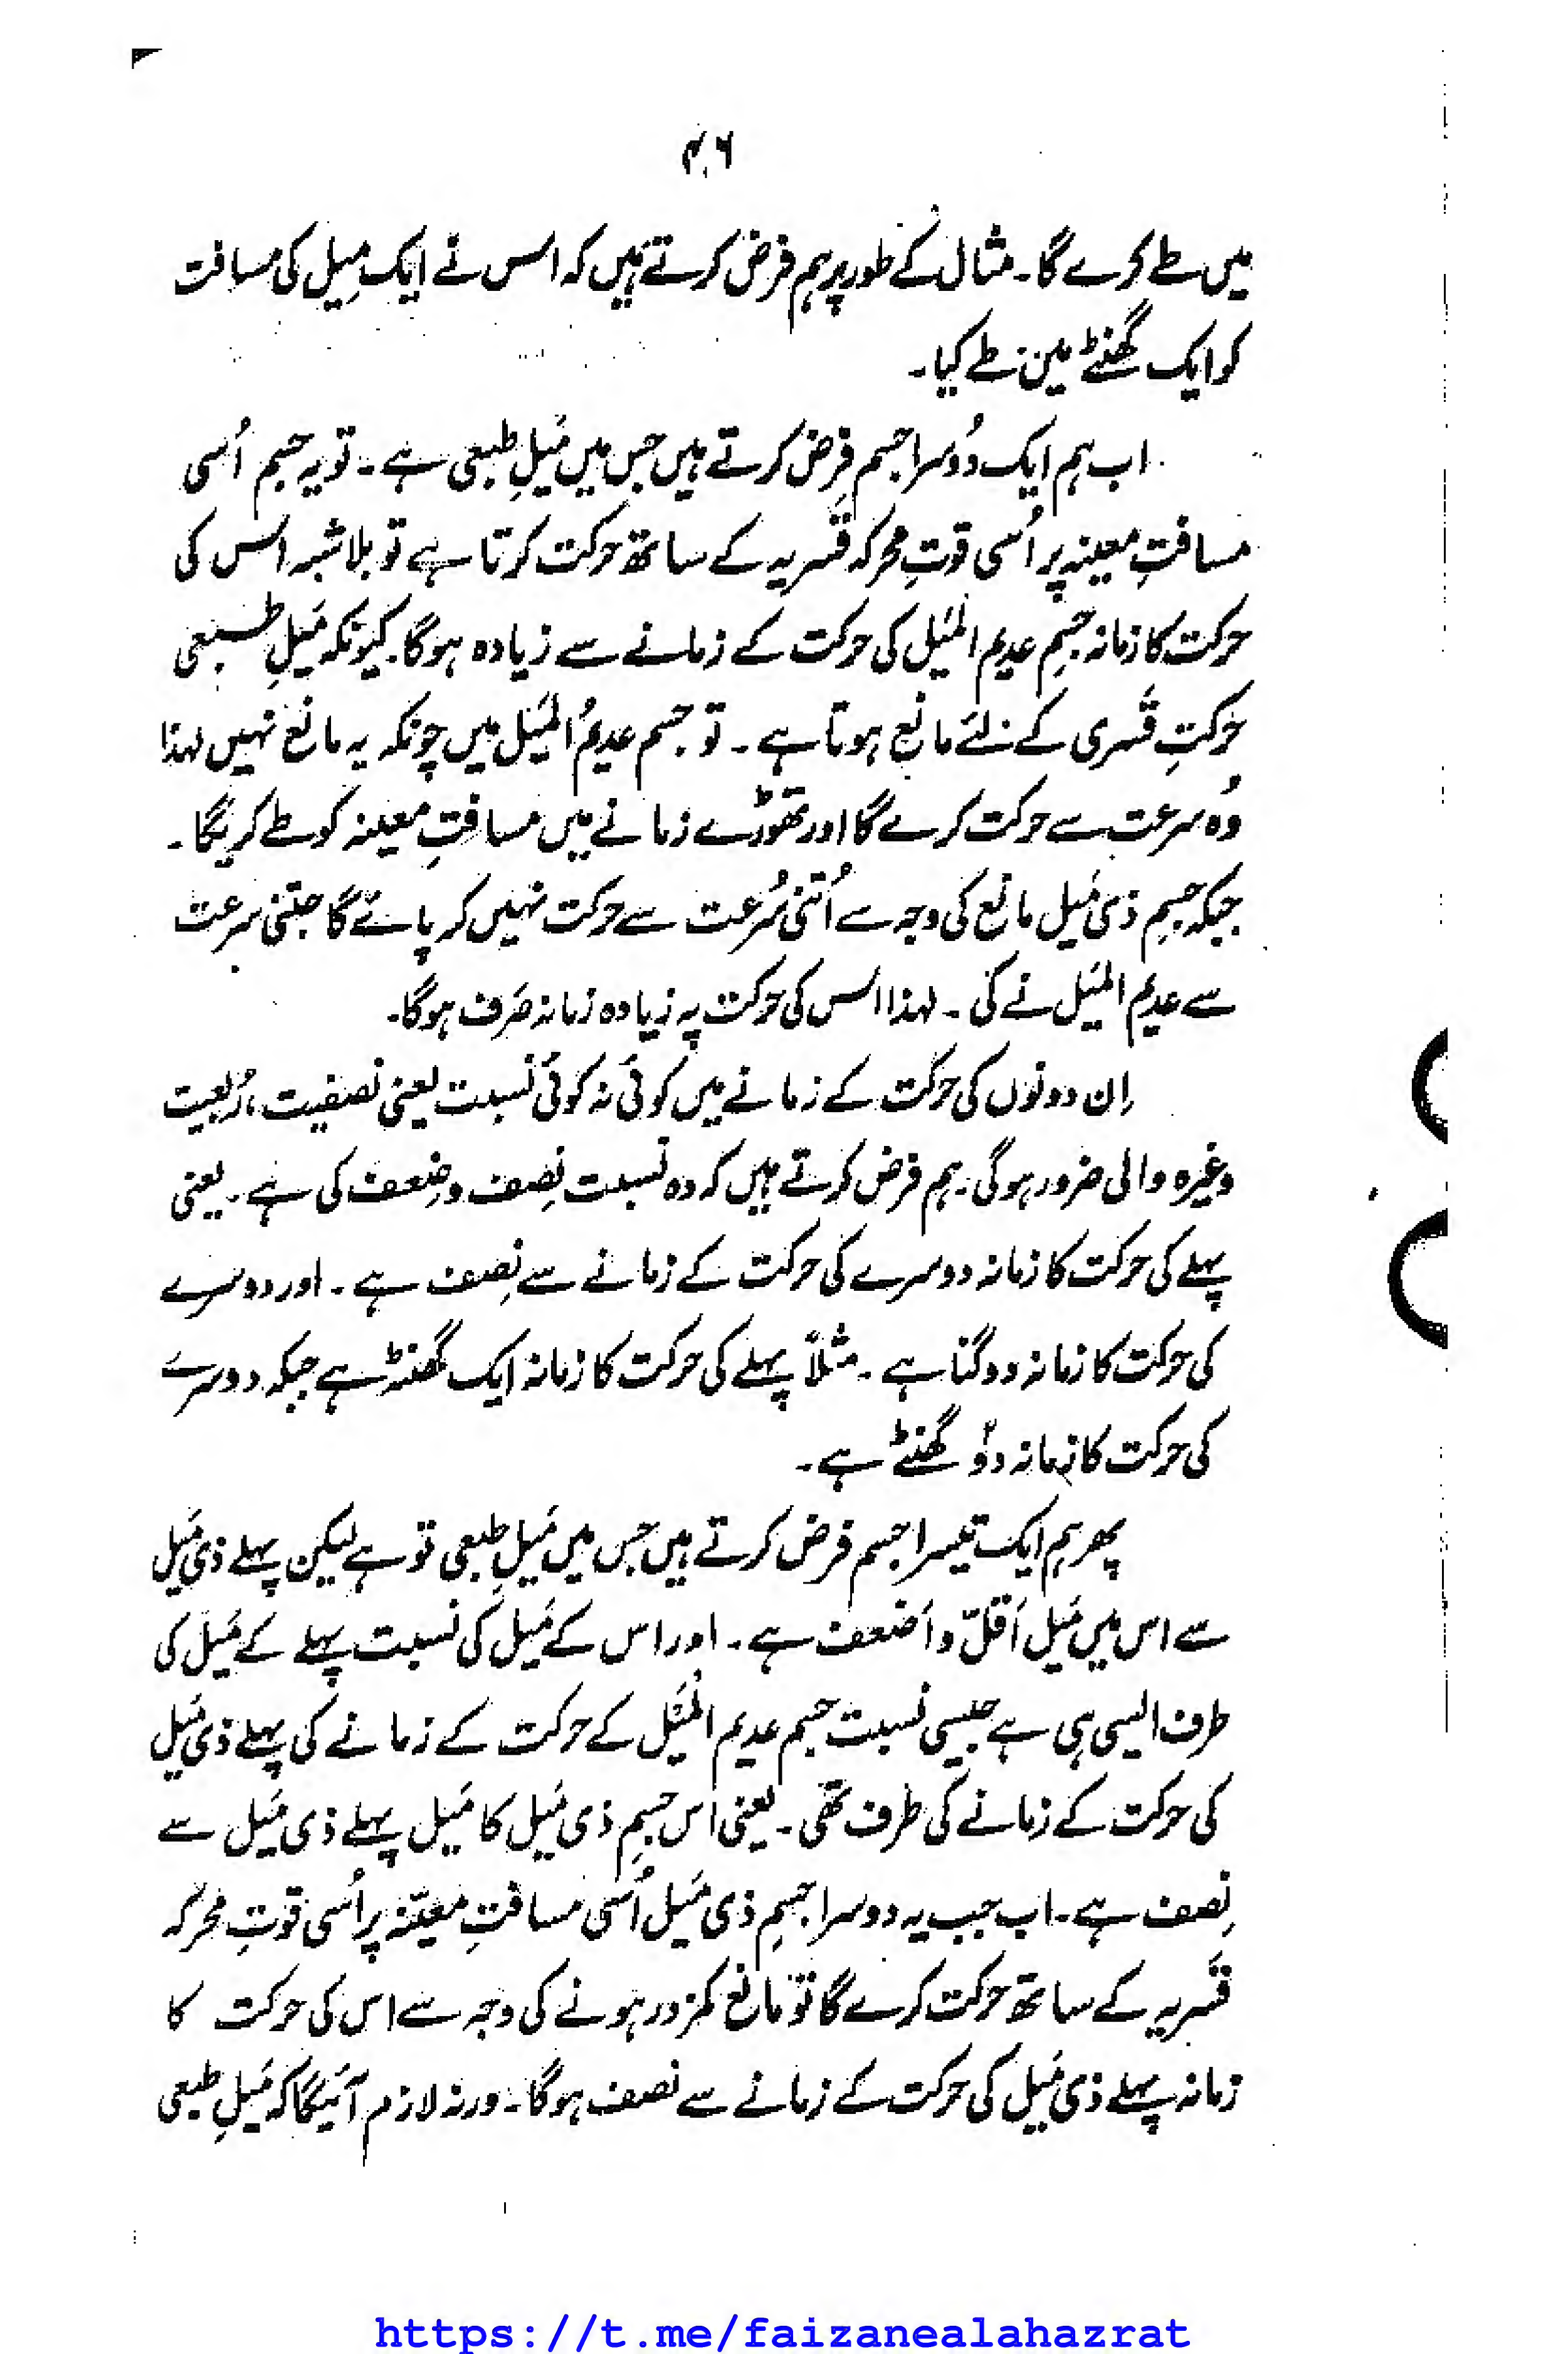 ۴۶
میں طے کرے گا۔ مثال کے طور پر ہم فرض کرتے ہیں کہ اس نے ایک مِیل کی مسافت
کو ایک گھنٹے میں طے کیا۔
اب ہم ایک دُوسرا جسم فرض کرتے ہیں جس میں مَیلِ طبعی ہے۔ تو یہ جسم اُسی
مسافتِ معینہ پر اُسی قوتِ محرکہ قسریہ کے ساتھ حرکت کرتا ہے تو بلا شبہ اس کی
حرکت کا زمانہ جسمِ عدیم المَیل کی حرکت کے زمانے سے زیادہ ہوگا۔ کیونکہ مَیلِ طبعی
حرکتِ قسری کے لئے مانع ہوتا ہے۔ تو جسم عدیمُ المَیل میں چونکہ یہ مانع نہیں لہذا
وُہ سرعت سے حرکت کرے گا اور تھوڑے زمانے میں مسافتِ معینہ کو طے کریگا۔
جبکہ جسمِ ذی مَیل مانع کی وجہ سے اُتنی سُرعت سے حرکت نہیں کر پائے گا جتنی سرعت
سے عدیم المَیل نے کی۔ لہذا اس کی حرکت پہ زیادہ زمانہ صَرف ہوگا۔
اِن دونوں کی حرکت کے زمانے میں کوئی نہ کوئی نسبت یعنی نصفیت، رُبعیت
وغیرہ والی ضرور ہوگی۔ ہم فرض کرتے ہیں کہ وہ نسبت نِصف و ضِعف کی ہے۔ یعنی
پہلے کی حرکت کا زمانہ دوسرے کی حرکت کے زمانے سے نِصف ہے۔ اور دوسرے
کی حرکت کا زمانہ دوگنا ہے۔ مثلاً پہلے کی حرکت کا زمانہ ایک گھنٹہ ہے جبکہ دوسرے
کی حرکت کا زمانہ دو گھنٹے ہے۔
پھر ہم ایک تیسرا جسم فرض کرتے ہیں جس میں مَیلِ طبعی تو ہے لیکن پہلے ذی مَیل
سے اس میں مَیل اَقلّ و اَضعف ہے۔ اور اس کے مَیل کی نسبت پہلے کے مَیل کی
طرف ایسی ہی ہے جیسی نسبت جسم عدیم المَیل کے حرکت کے زمانے کی پہلے ذی مَیل
کی حرکت کے زمانے کی طرف تھی۔ یعنی اس جسمِ ذی مَیل کا مَیل پہلے ذی مَیل سے
نِصف ہے۔ اب جب یہ دوسرا جسمِ ذی مَیل اُسی مسافتِ معیّنہ پر اُسی قوتِ محرکہ
قسریہ کے ساتھ حرکت کرے گا تو مانع کمزور ہونے کی وجہ سے اس کی حرکت کا
زمانہ پہلے ذی مَیل کی حرکت کے زمانے سے نصف ہوگا۔ ورنہ لازم آئیگا کہ مَیلِ طبعی
https://t.me/faizanealahazrat